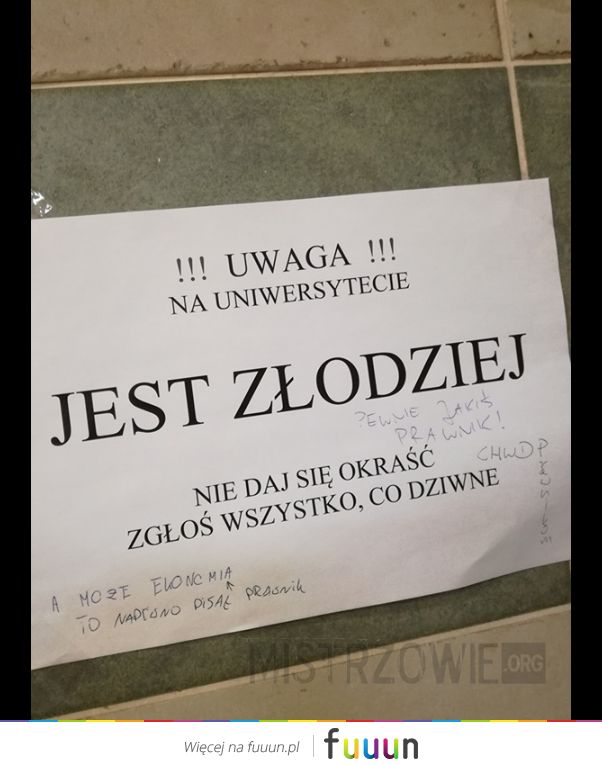 !!! UWAGA !!!
NA UNIWERSYTECIE
JEST ZŁODZIEJ
PEWNIE JAKIŚ
PRAWNIK!
NIE DAJ SIĘ OKRAŚĆ
CHWDP
ZGŁOŚ WSZYSTKO, CO DZIWNE
A MOŻE EKONOMIA
TO NAPEWNO PISAŁ PRAWNIK
MISTRZOWIE.ORG
Więcej na fuuun.pl
fuuun